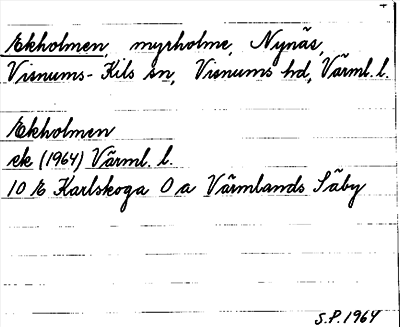 Ekholmen, myrholme, Nynäs,
Visnums-Kils sn, Visnums hd, Värml. l.
Ekholmen
ek (1964) Värml. l.
10 E Karlskoga 0 a Värmlands Säby
S.P. 1964